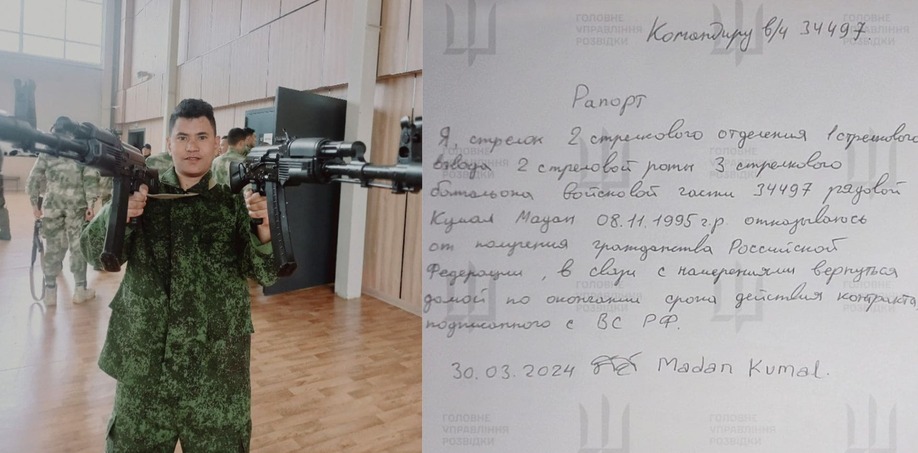 ГОЛОВНЕ
УПРАВЛІННЯ
РОЗВІДКИ
Командиру в/ч 34497.
Рапорт
Я стрелок 2 стрелкового отделения 1 стрелкового
взвода 2 стрелковой роты 3 стрелкового
батальона войсковой части 34497 рядовой
Кумал Мадан 08.11.1995 г.р. отказываюсь
от получения гражданства Российской
Федерации, в связи с намерениями вернуться
домой по окончании срока действия контракта,
подписанного с ВС РФ.
30.03.2024 Madan Kumal.
ГОЛОВНЕ
УПРАВЛІННЯ
РОЗВІДКИ
ГОЛОВНЕ
УПРАВЛІННЯ
РОЗВІДКИ